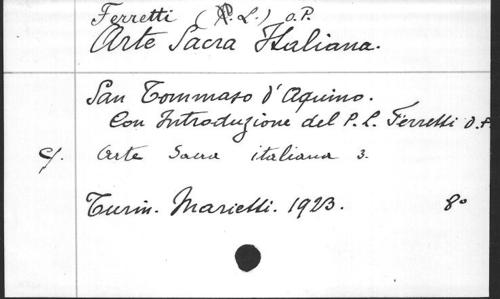 Ferretti (P. L.) O.P.
Arte Sacra Italiana.
San Tommaso d'Aquino.
Con Introduzione del P. L. Ferretti O.P.
c/. Arte Sacra italiana 3.
Turin. Marietti. 1923. 8º